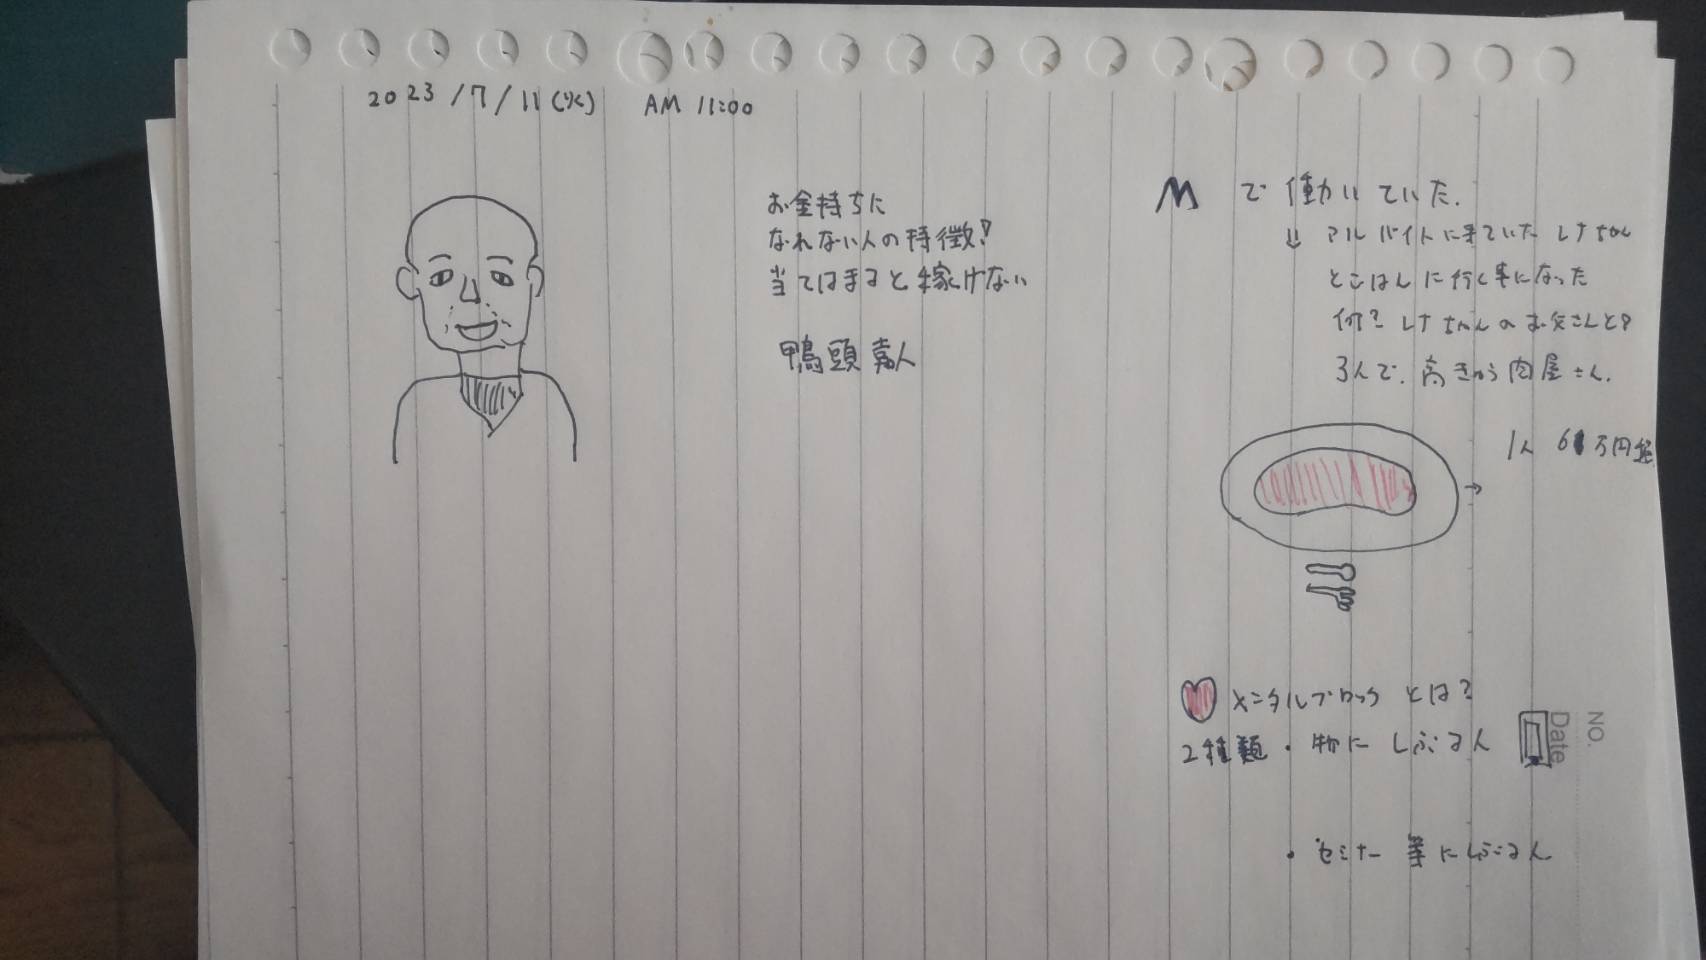 2023/7/11(火) AM 11:00
お金持ちに
なれない人の特徴!
当てはまると稼げない
鴨頭嘉人
Mで働いていた.
↓ アルバイトに来ていたレナちゃん
とごはんに行く事になった
何? レナちゃんのお父さんと?
3人で. 高きゅう肉屋さん.
→ 1人 6万円
メンタルブロックとは?
2種類・物にしぶる人
・セミナー等にしぶる人
NO.
Date